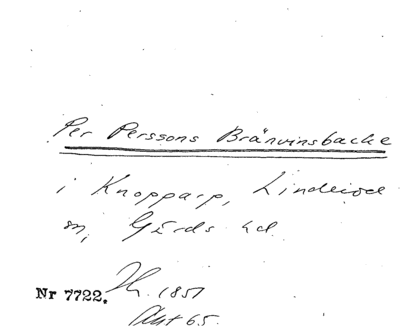 Per Perssons Bränvinsbacke
i Knopparp, Linderöd
sn, Gärds hd
Nr 7722. 1851
Akt 65.